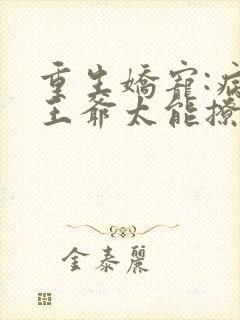 重生嬌寵:病
王爺太能撩
金泰麗